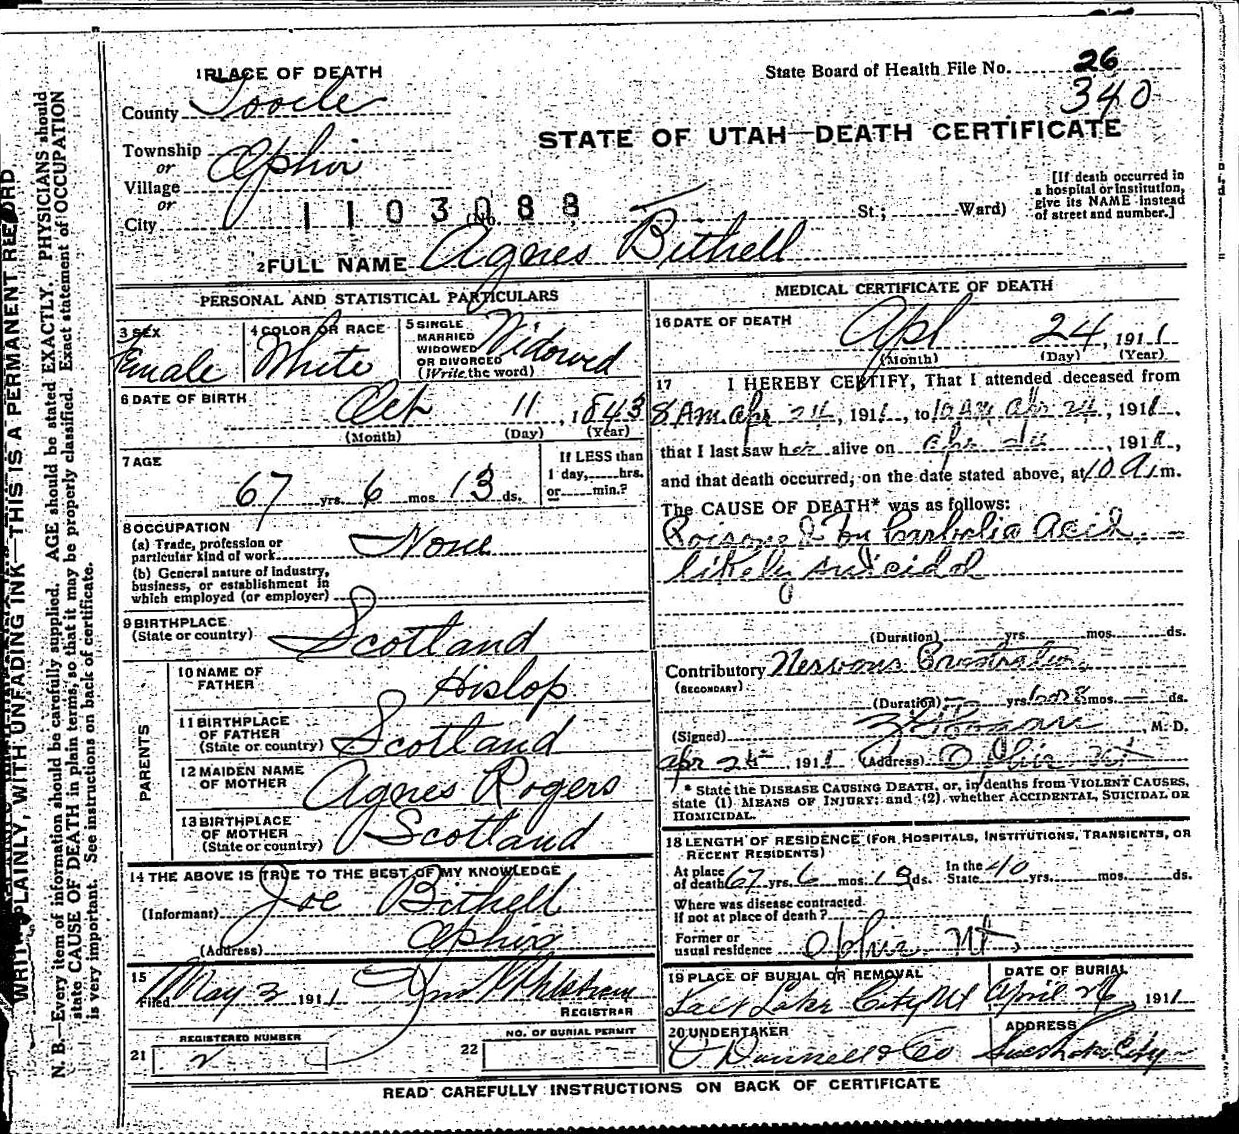 WRITE PLAINLY, WITH UNFADING INK—THIS IS A PERMANENT RECORD
N. B.—Every item of information should be carefully supplied. AGE should be stated EXACTLY. PHYSICIANS should
state CAUSE OF DEATH in plain terms, so that it may be properly classified. Exact statement of OCCUPATION
is very important. See instructions on back of certificate.
1 PLACE OF DEATH
State Board of Health File No. 26
340
County Tooele
STATE OF UTAH—DEATH CERTIFICATE
Township
or
Village
or
City
Ophir
1103088
(No. St.; Ward)
[If death occurred in
a hospital or institution,
give its NAME instead
of street and number.]
2 FULL NAME Agnes Bithell
PERSONAL AND STATISTICAL PARTICULARS
3 SEX
Female
4 COLOR OR RACE
White
5 SINGLE
MARRIED
WIDOWED
OR DIVORCED
(Write the word)
Widowed
6 DATE OF BIRTH
Oct 11, 1843
(Month) (Day) (Year)
7 AGE
67 yrs. 6 mos. 13 ds.
If LESS than
1 day,......hrs.
or......min.?
8 OCCUPATION
(a) Trade, profession or
particular kind of work
None
(b) General nature of industry,
business, or establishment in
which employed (or employer)
9 BIRTHPLACE
(State or country)
Scotland
PARENTS
10 NAME OF
FATHER
Hislop
11 BIRTHPLACE
OF FATHER
(State or country)
Scotland
12 MAIDEN NAME
OF MOTHER
Agnes Rogers
13 BIRTHPLACE
OF MOTHER
(State or country)
Scotland
14 THE ABOVE IS TRUE TO THE BEST OF MY KNOWLEDGE
(Informant) Joe Bithell
(Address) Ophir
15
Filed May 2 1911
REGISTRAR
REGISTERED NUMBER
21 2
NO. OF BURIAL PERMIT
22
MEDICAL CERTIFICATE OF DEATH
16 DATE OF DEATH
Apl 24, 1911
(Month) (Day) (Year)
17 I HEREBY CERTIFY, That I attended deceased from
8 AM apr 24, 1911, to 10 AM apr 24, 1911,
that I last saw her alive on apr 24, 1911,
and that death occurred, on the date stated above, at 10 A.m.
The CAUSE OF DEATH* was as follows:
Poisoned by Carbolic Acid,
likely suicidal
(Duration) yrs. mos. ds.
Contributory Nervous Prostration
(SECONDARY)
(Duration) yrs. mos. ds.
(Signed) M. D.
apr 24 1911 (Address) Ophir Ut
* State the DISEASE CAUSING DEATH, or, in deaths from VIOLENT CAUSES,
state (1) MEANS OF INJURY; and (2) whether ACCIDENTAL, SUICIDAL OR
HOMICIDAL.
18 LENGTH OF RESIDENCE (FOR HOSPITALS, INSTITUTIONS, TRANSIENTS, OR
RECENT RESIDENTS)
At place
of death 67 yrs. 6 mos. 13 ds.
In the
State 40 yrs. mos. ds.
Where was disease contracted
If not at place of death?
Former or
usual residence Ophir Ut,
19 PLACE OF BURIAL OR REMOVAL
Salt Lake City Ut
DATE OF BURIAL
April 26, 1911
20 UNDERTAKER
O'Donnell & Co
ADDRESS
Salt Lake City
READ CAREFULLY INSTRUCTIONS ON BACK OF CERTIFICATE